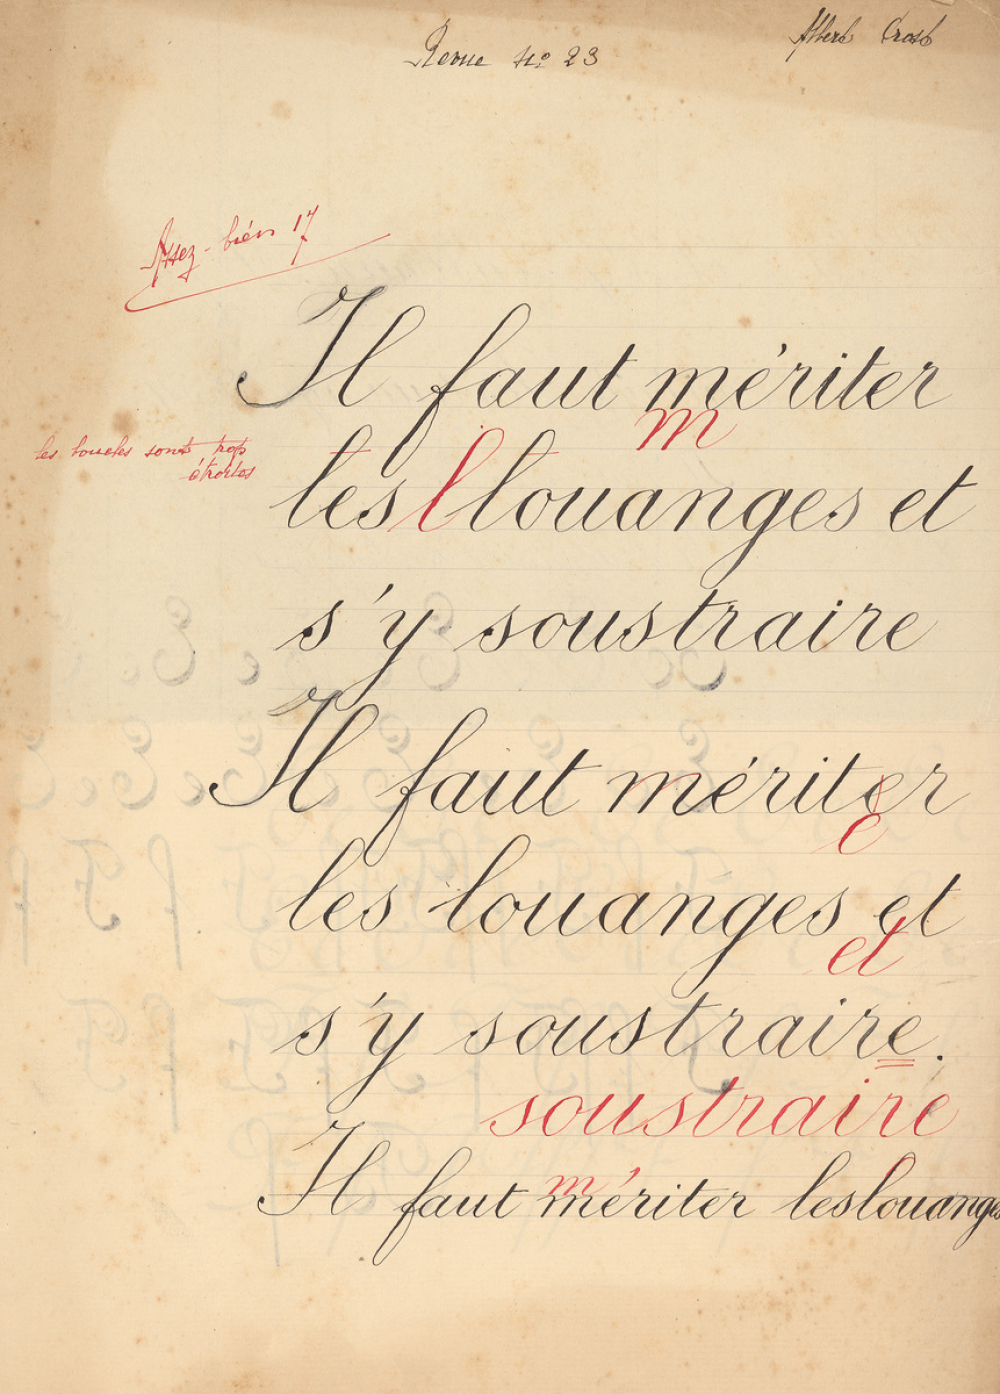 Albert Crost
Revue No 23
Assez-bien 17
Il faut mériter
m
les boucles sont trop
étroites
les l louanges et
s'y soustraire
Il faut mériter
e
les louanges et
et
s'y soustraire.
soustraire
m
Il faut mériter les louanges